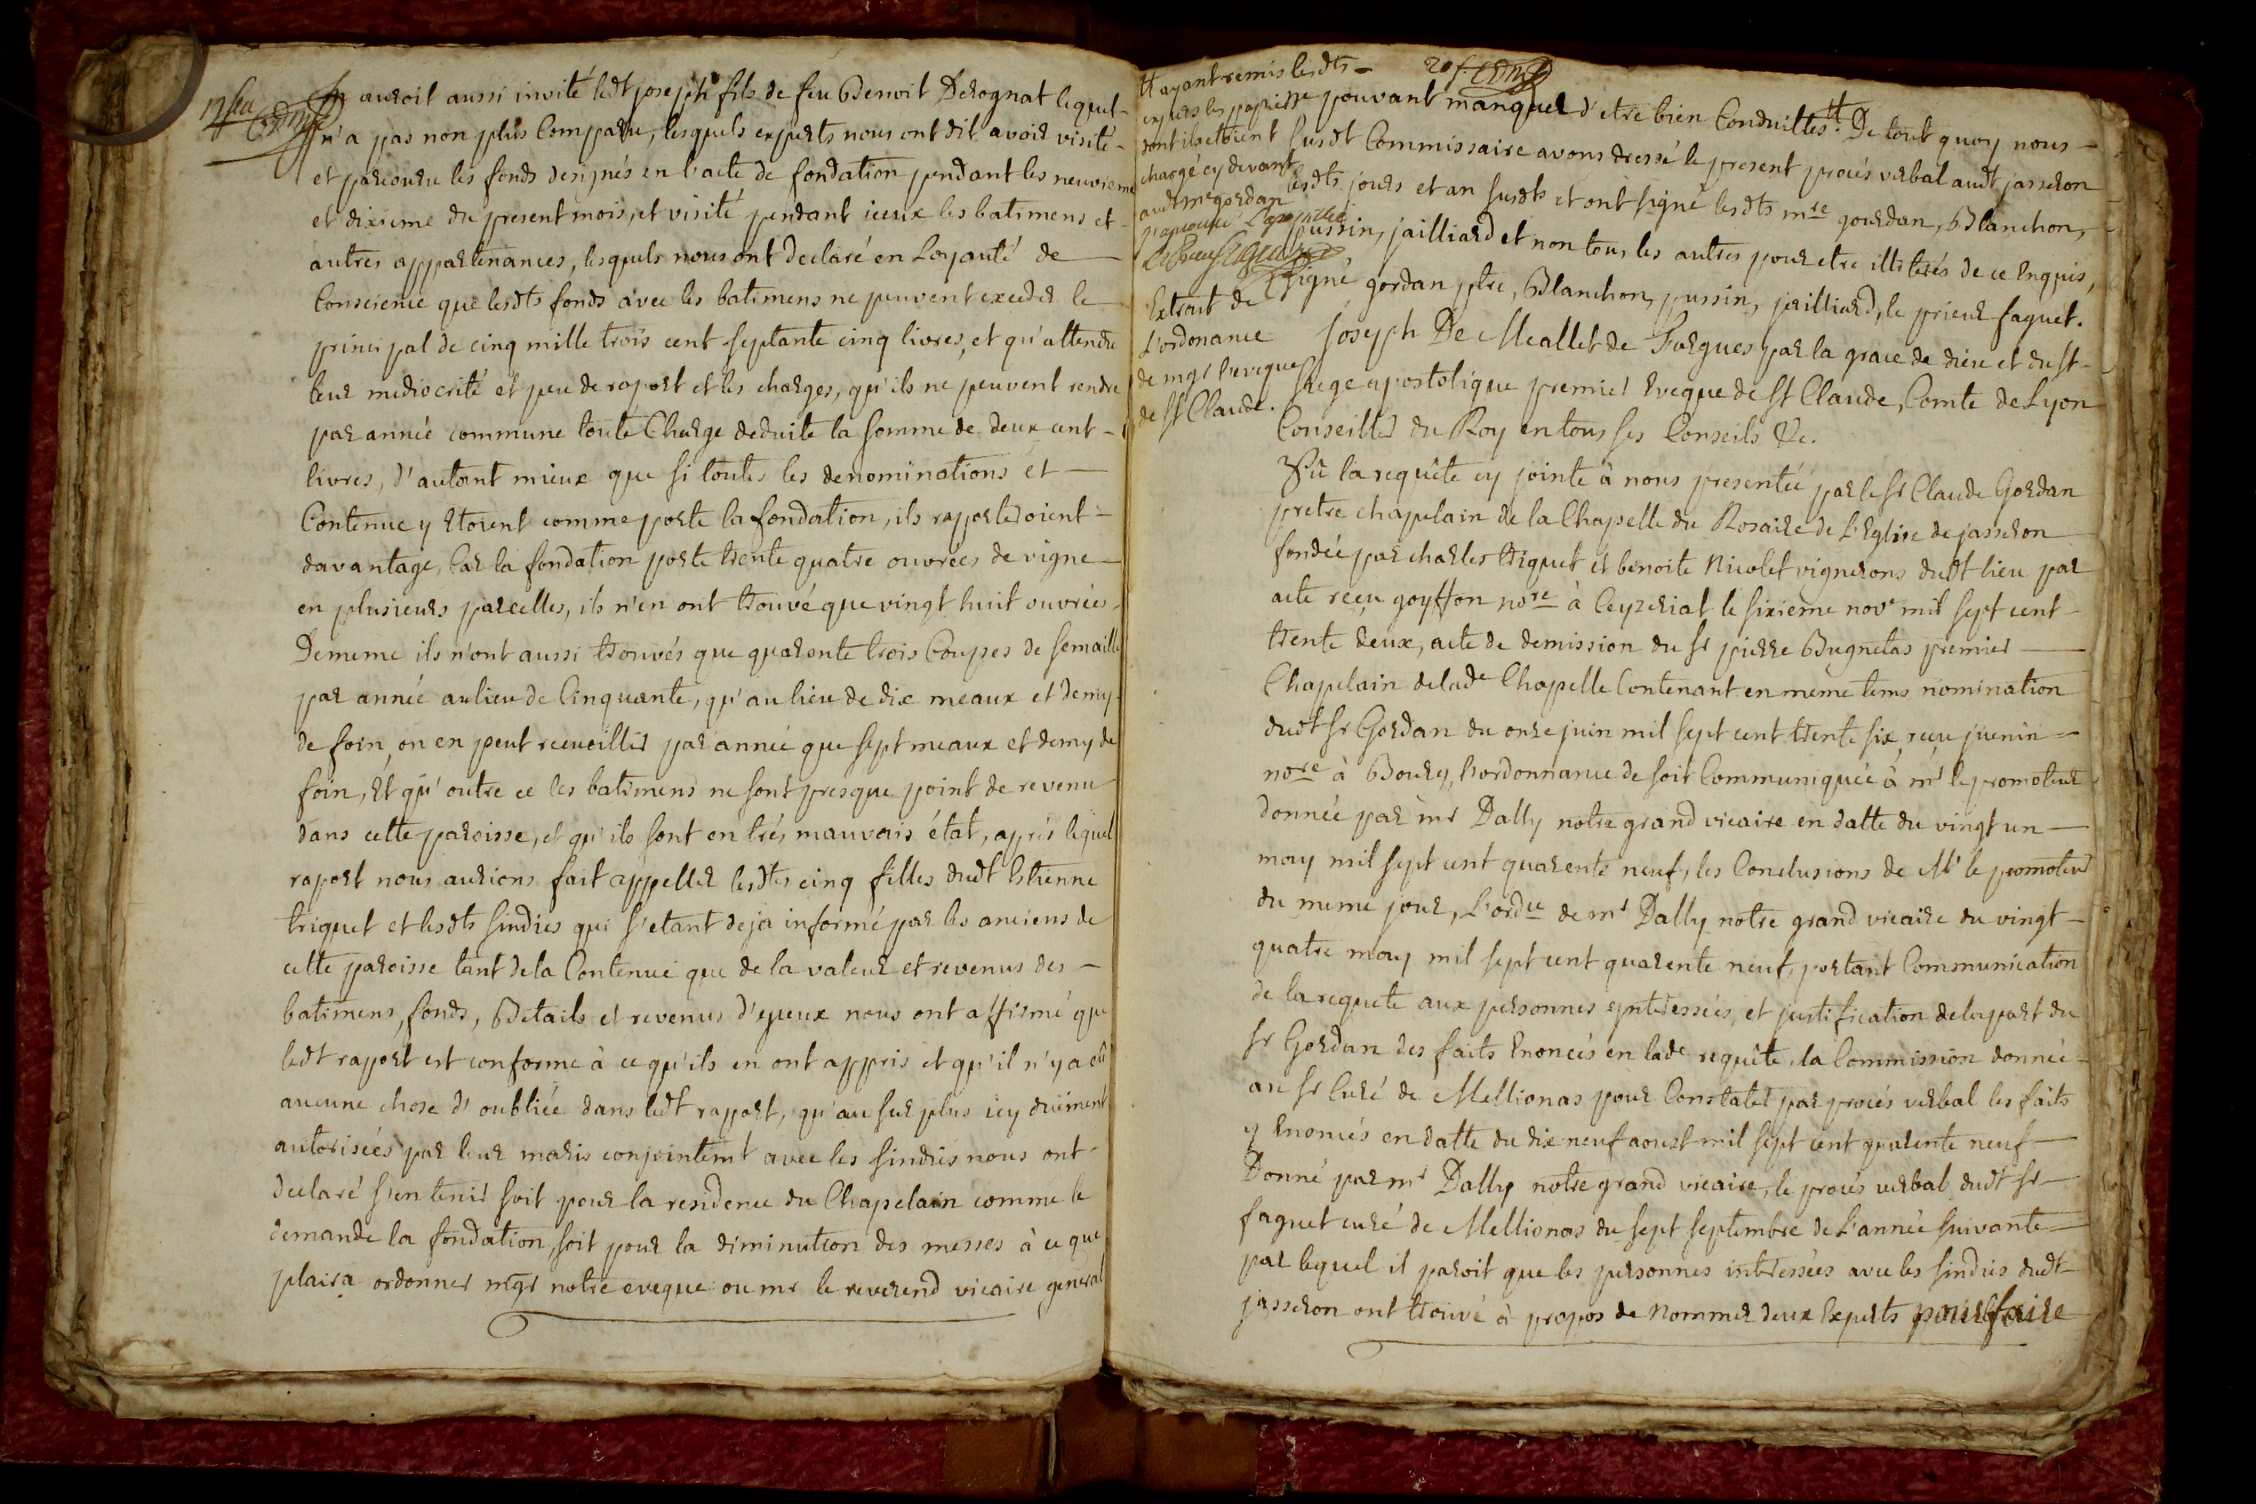 auroit aussi invité ledt joseph fils de feu Benoit Derognat lequel
n'a pas non plus Comparu, lesquels experts nous ont dit avoir visité
et parcouru les fonds designés en l'acte de fondation pendant les neuvieme
et dixieme du present mois, et visité pendant iceux les batimens et
autres appartenances, lesquels nous ont declaré en Loyauté de
Conscience que lesdts fonds avec les batimens ne peuvent exceder le
principal de cinq mille trois cent septante cinq livres, et qu'attendu
leur mediocrité et peu de raport et les charges, qu'ils ne peuvent rendre
par année commune toute Charge deduite la somme de deux cent
livres, d'autant mieux que si toutes les denominations et
Contenue y etoient comme porte la fondation, ils raporteroient
davantage, Car la fondation porte trente quatre ouvrées de vigne
en plusieurs parcelles, ils n'en ont trouvé que vingt huit ouvrées
Dememe ils n'ont aussi trouvés que quarente trois Coupes de semaille
par année aulieu de Cinquante, qu'au lieu de dix meaux et demy
de foin, on en peut recueillir par année que sept meaux et demy de
foin, Et qu'outre ce les batimens ne font presque point de revenu
dans cette paroisse, et qu'ils sont en trés mauvais état, aprés lequel
raport nous aurions fait appeller lesdtes cinq filles dudt Estienne
triquet et lesdts sindics qui s'etant deja informé par les anciens de
cette paroisse tant dela Contenue que de la valeur et revenus des
batimens, fonds, Betails et revenus d'yceux nous ont affirmé que
ledt raport est conforme à ce qu'ils en ont appris et qu'il n'y a eû
aucune chose d'oubliée dans ledt rapport, qu'au sur plus icy duement
autorisées par leur maris conjointemt avec les sindics nous ont
declaré s'en tenir soit pour la residence du Chapelain comme le
demande la fondation, soit pour la diminution des messes à ce que
plaira ordonner mgr notre eveque ou mr le reverend vicaire general
tt ayant remis lesdts
experts les papiers
dont ils etoient
chargé cy devant
audt mre gordan
ne pouvant manquer d'etre bien Conduittes. tt De tout quoy nous
susdt Commissaire avons dressé le present procés verbal audt jasseron
lesdts jours et an susdts et ont signé lesdts mre gordan, Blanchon,
pussin, jailliard et non tous les autres pour etre illiterés de ce Enquis,
signé gordan ptre, Blanchon, pussin, jailliard, le prieur faguet.
Extrait de
L'ordonance
de mgr l'eveque
de St Claude.
Joseph De Meallet de Fargues par la grace de dieu et du st
siege apostolique premier Eveque de St Claude, Comte de Lyon
Conseiller du Roy en tous ses Conseils &c.
Vû la requête cy jointe à nous presentée par le Sr Claude Gordan
pretre chapelain de la Chapelle du Rosaire de L'Eglise de jasseron
fondée par charles triquet et benoite Nicolet vignerons dudt lieu par
acte reçu goyffon nore à Ceyzeriat le sixieme nove mil sept cent
trente deux, acte de demission du sr pierre Bugnetas premier
Chapelain delade Chapelle Contenant en meme tems nomination
dudt sr Gordan du onze juin mil sept cent trente six, reçu juenin
nore à Bourg, l'ordonnance de soit Communiquée à mr le promoteur
donnée par mr Dally notre grand vicaire en datte du vingt un
may mil sept cent quarente neuf, les Conclusions de Mr le promoteur
du meme jour, L'ordce de mr Dally notre grand vicaire du vingt
quatre may mil sept cent quarente neuf, portant Communication
de la requete aux personnes ynteressées, et justification delapart du
sr Gordan des faits Enoncés en lade requête, la Commission donnée
au sr Curé de Mellionas pour Constater par procés verbal les faits
y Enoncés en datte du dix neuf aoust mil sept cent quarente neuf
Donné par mr Dally notre grand vicaire, le procés verbal dudt sr
faguet curé de Mellionas du sept septembre de L'année suivante
par lequel il paroit que les personnes intéressées avec les sindics dudt
jasseron ont trouvé à propos de Nommer deux Experts pour faire